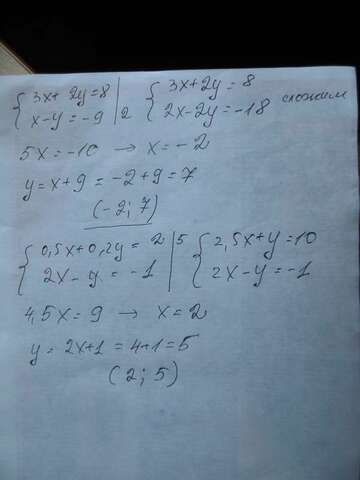 {3x+2y=8 | {3x+2y=8
{x-y=-9 | 2 {2x-2y=-18 сложим
5x=-10 → x=-2
y=x+9=-2+9=7
(-2; 7)
{0,5x+0,2y=2 | 5 {2,5x+y=10
{2x-y=-1 | {2x-y=-1
4,5x=9 → x=2
y=2x+1=4+1=5
(2; 5)